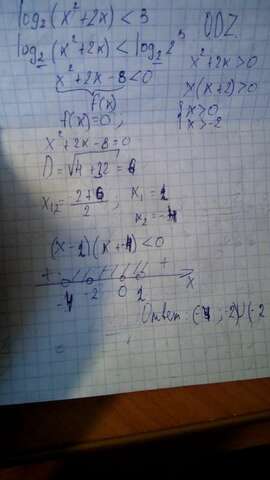 log₂(x²+2x) < 3
ODZ.
log₂(x²+2x) < log₂ 2³
x²+2x-8<0
f(x)
x²+2x>0
x(x+2)>0
{x>0
x>-2
f(x)=0;
x²+2x-8=0
D=√4+32=6
x₁,₂ = 2+6/2, x₁=2
x₂=-4
(x-2)(x+4)<0
+ +
-4 -2 0 2 x
Ответ: (-4;-2)∪(-2